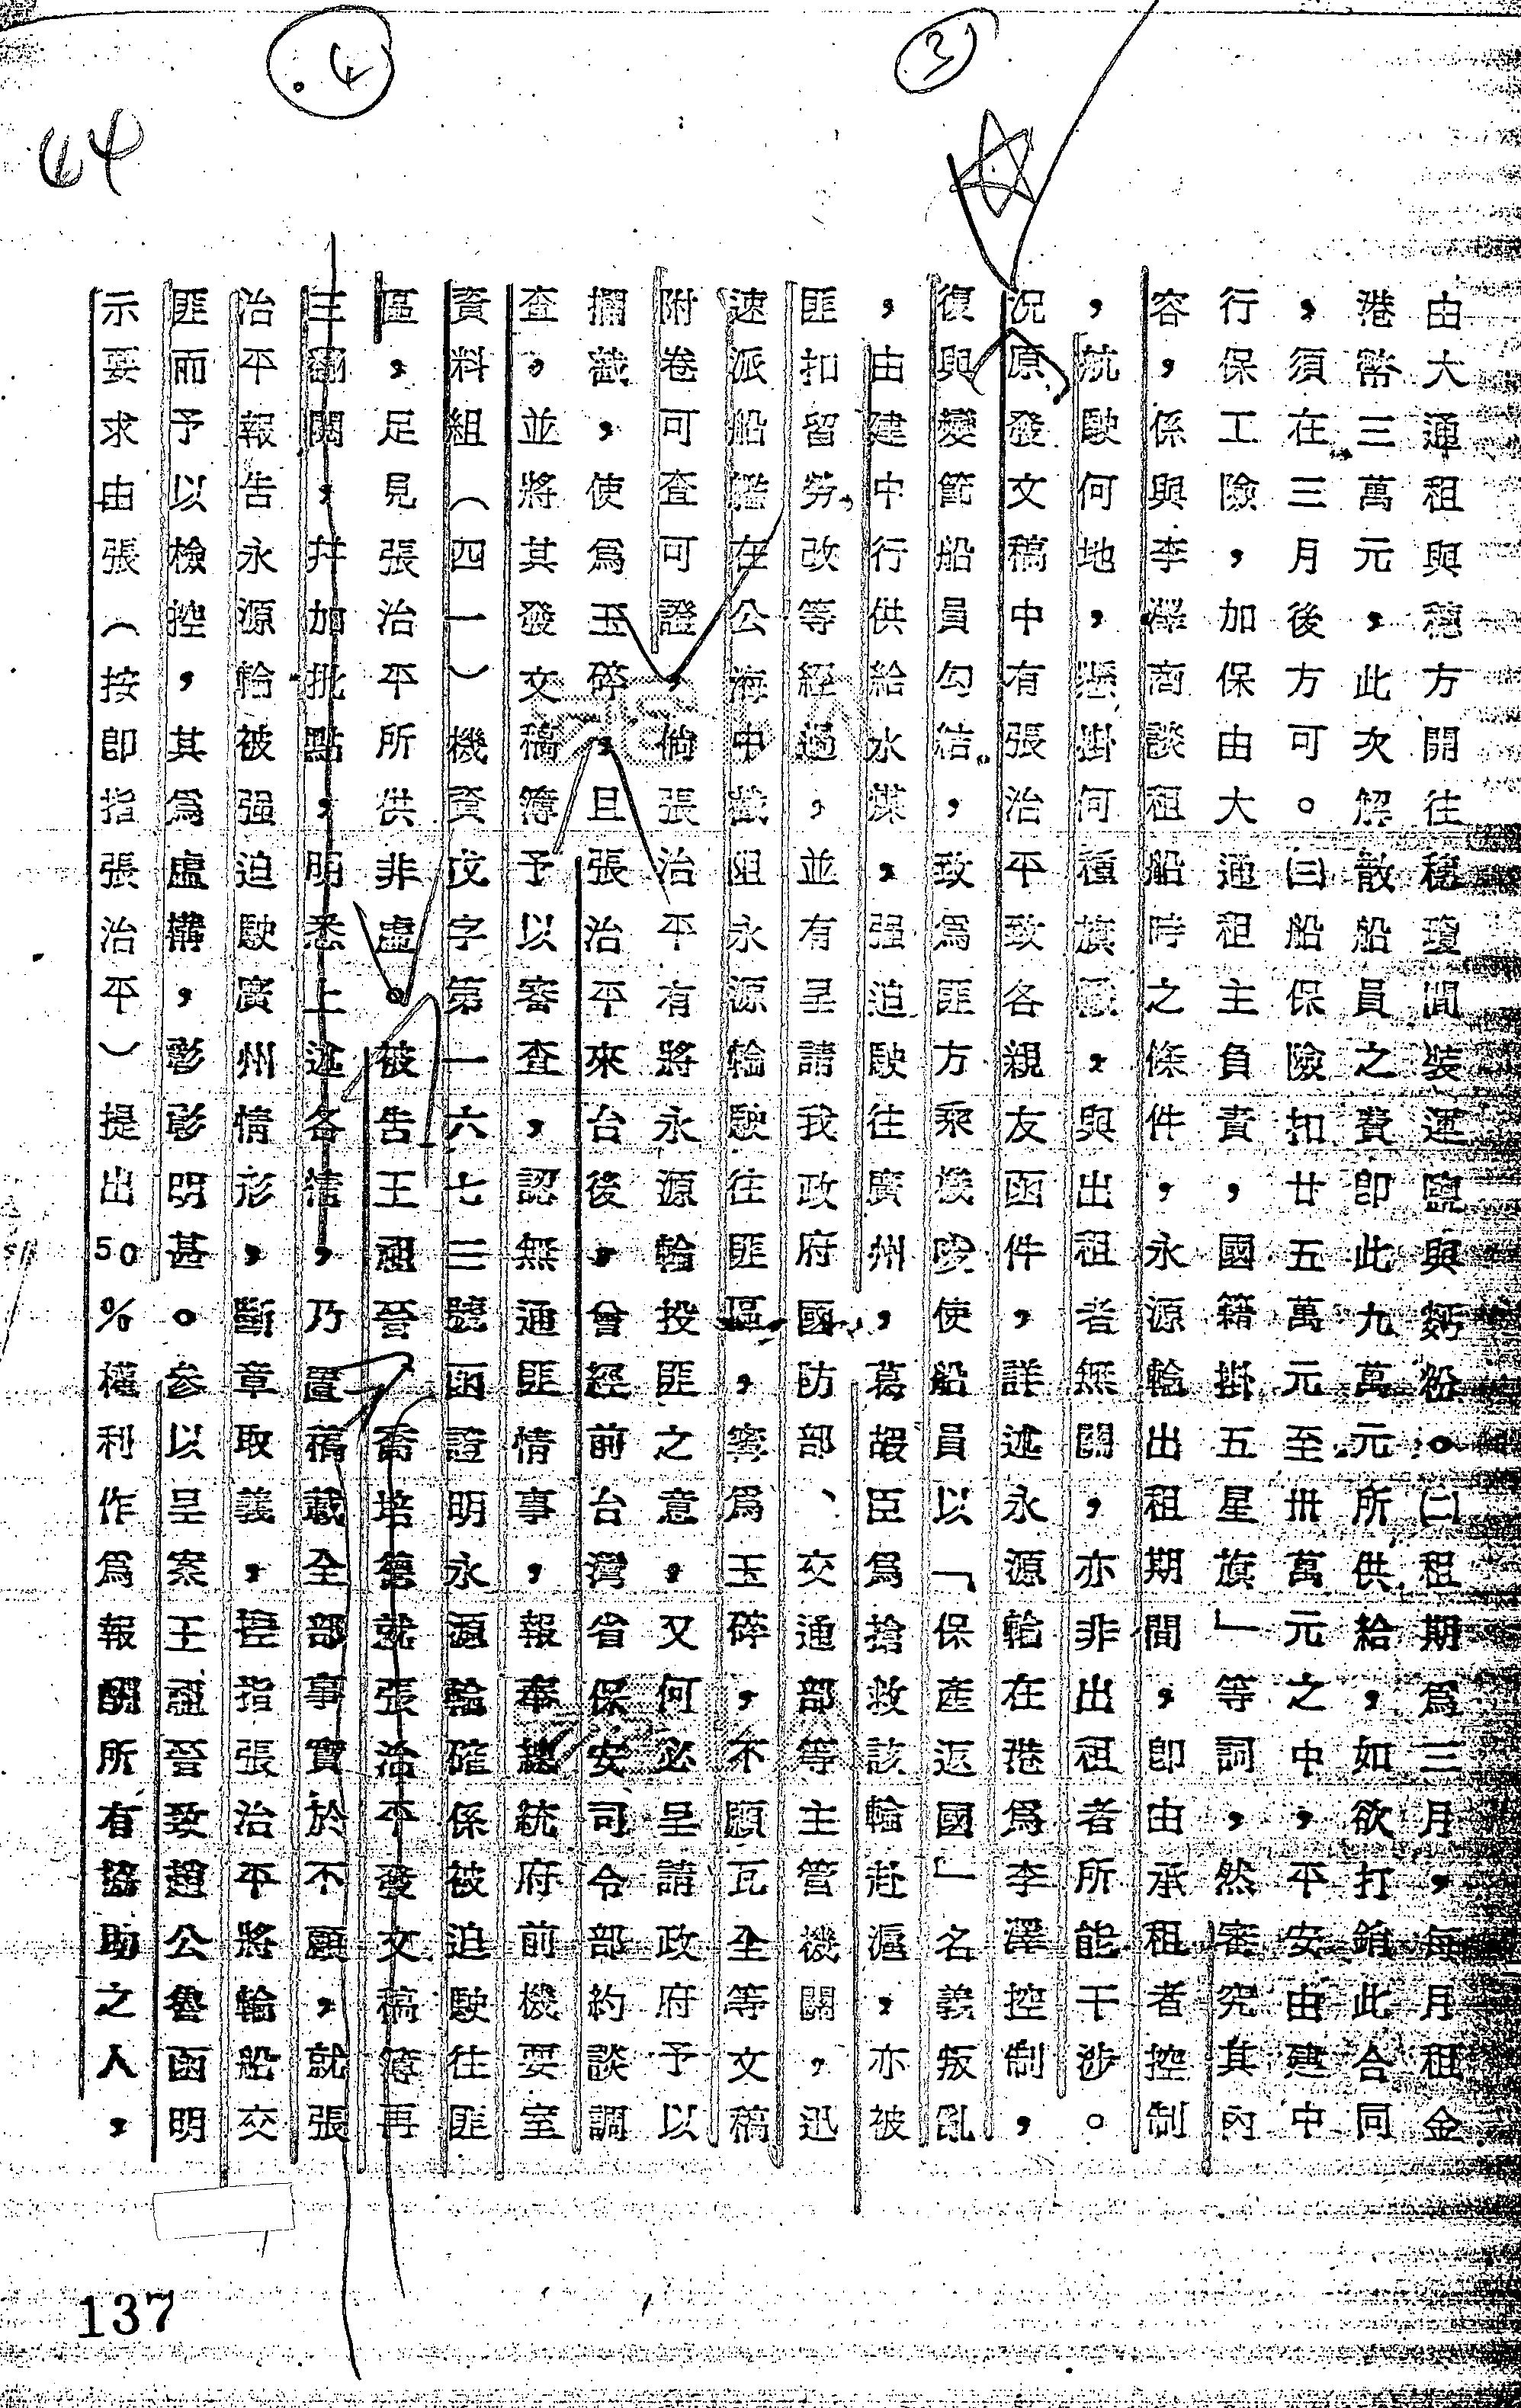 44
.4
3
由大運租與穗方開往穗瓊間裝運鹽與麪粉。㈡租期爲三月,每月租金
港幣三萬元,此次解散船員之費即此九萬元所供給,如欲打銷此合同
,須在三月後方可。㈢船保險扣廿五萬元至卅萬元之中,平安由建中
行保工險,加保由大通租主負責,國籍掛五星旗」等詞,然審究其內
容,係與李澤商談租船時之條件,永源輪出租期間,即由承租者控制
,航駛何地,懸掛何種旗幟,與出租者無關,亦非出租者所能干涉。
況原發文稿中有張治平致各親友函件,詳述永源輪在港爲李澤控制,
復與變節船員勾結。,致爲匪方乘唆使船員以「保產返國」名義叛亂
,由建中行供給水煤,强迫駛往廣州,葛嘏臣爲搶救該輪赴滬,亦被
匪扣留勞改等經過,並有呈請我政府國防部、交通部等主管機關,迅
速派船艦在公海中截阻永源輪駛往匪區,寧爲玉碎,不願瓦全等文稿
附卷可查可證,倘張治平有將永源輪投匪之意,又何必呈請政府予以
攔截,使爲玉碎,且張治平來台後,曾經前台灣省保安司令部約談調
查。並將其發文稿簿予以審查,認無通匪情事,報奉總統府前機要室
資料組(四一)機資字第一六七三號函證明永源輪確係被迫駛往匪
區,足見張治平所供非虛。被告王晉喬培就張治平發文稿簿再
三翻閱,幷加批點,明悉上述各情,乃置稿載全部事實於不顧,就張
治平報告永源輪被强迫駛廣州情形,斷章取義,誣指張治平將輪船交
匪而予以檢控,其爲虛構,彰彰明甚。參以呈案王晉致趙公魯函明
示要求由張(按即指張治平)提出50%權利作爲報酬所有協助之人,
137